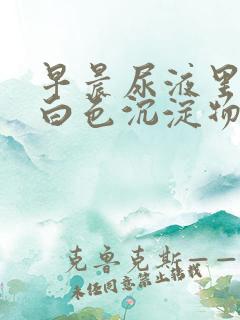 早晨尿液里
白色沉淀物
克鲁克斯——
未经同意禁止转载